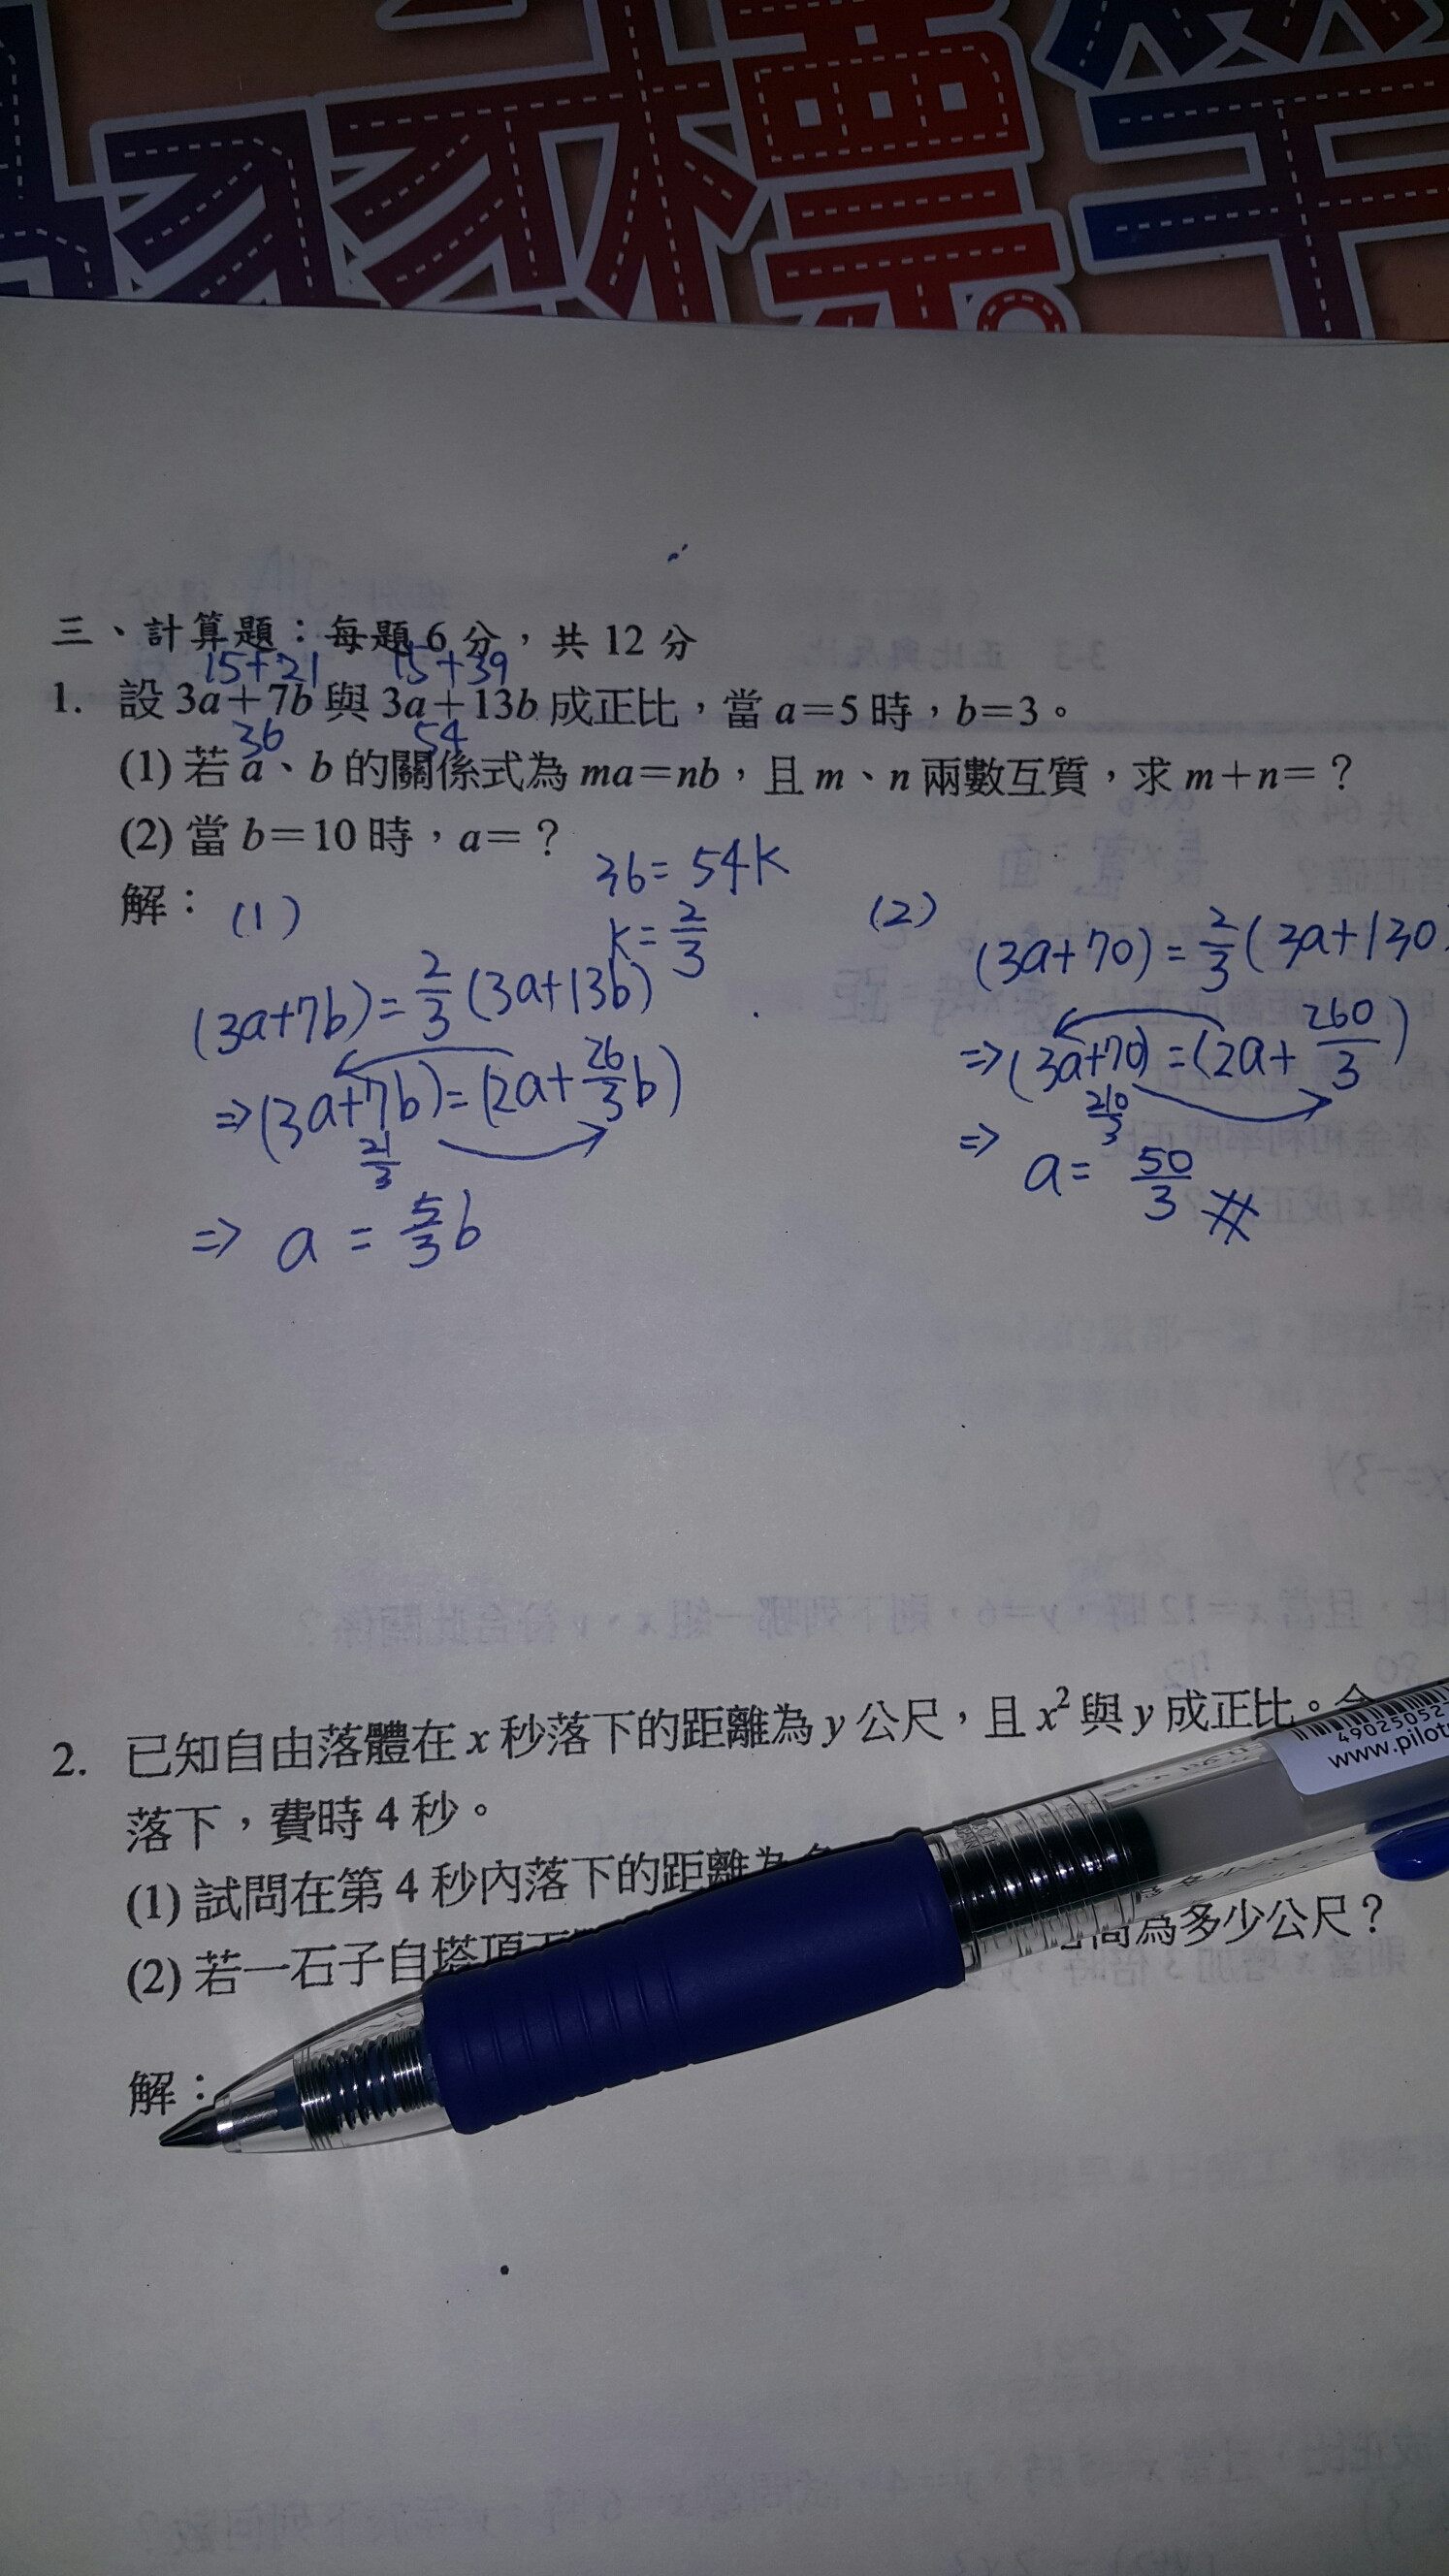 三、計算題：每題 6 分，共 12 分
15+21 15+39
1. 設 3a＋7b 與 3a＋13b 成正比，當 a＝5 時，b＝3。
36 54
(1) 若 a、b 的關係式為 ma＝nb，且 m、n 兩數互質，求 m＋n＝？
(2) 當 b＝10 時，a＝？
解：
36 = 54k
k = 2/3
(1)
(3a+7b) = 2/3 (3a+13b)
⇒ (3a+7b) = (2a + 26/3 b)
21/3
⇒ a = 5/3 b
(2)
(3a+70) = 2/3 (3a+130
⇒ (3a+70) = (2a + 260/3)
210/3
⇒ a = 50/3 #
2. 已知自由落體在 x 秒落下的距離為 y 公尺，且 x² 與 y 成正比。
落下，費時 4 秒。
(1) 試問在第 4 秒內落下的距離為
(2) 若一石子自塔頂 為多少公尺？
解：
49025052
www.pilot